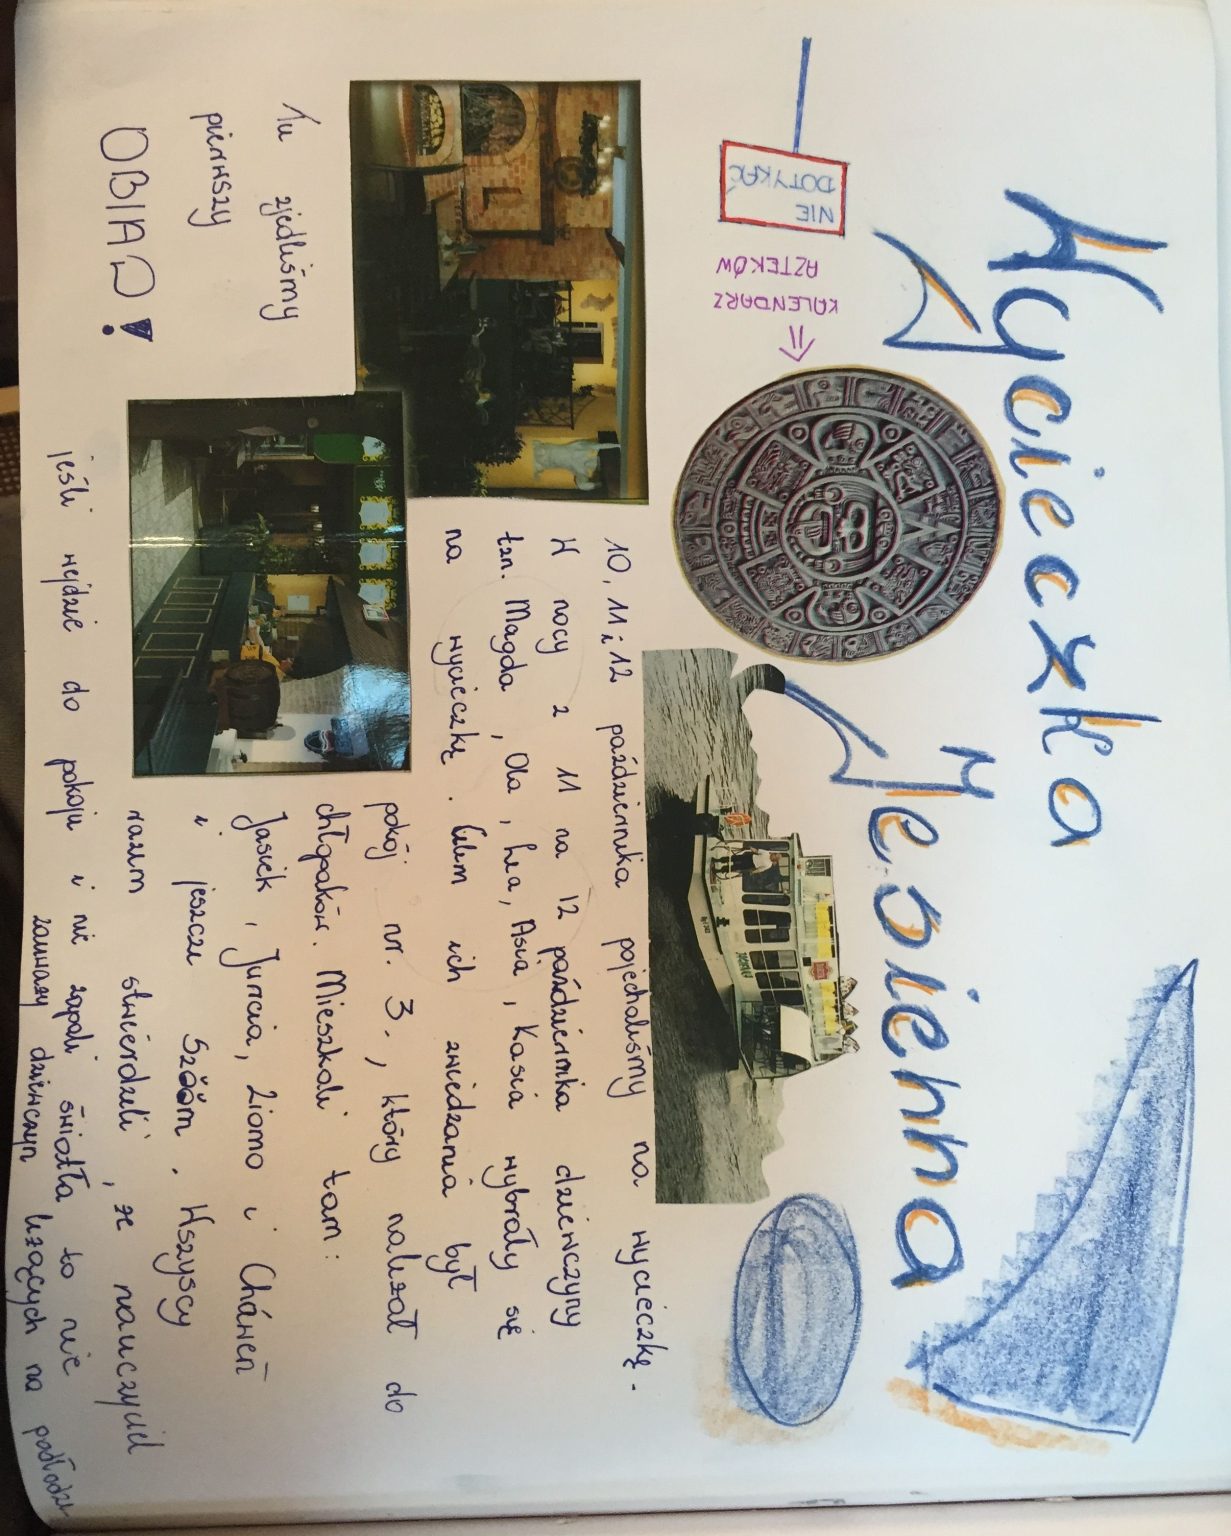 Wycieczka
Jesienna
NIE
DOTYKAĆ
KALENDARZ
AZTEKÓW
10, 11 i 12 października pojechaliśmy na wycieczkę.
W nocy z 11 na 12 października dziewczyny
tzn. Magda, Ola, Lea, Asia, Kasia wybrały się
na wycieczkę. Celem ich zwiedzania był
pokój nr. 3., który należał do
chłopaków. Mieszkali tam:
Jasiek, Juncia, Ziomo i Cháweń
i jeszcze Szööm. Wszyscy
razem stwierdzili, że nauczyciel
jeśli wejdzie do pokoju i nie zapali światła to nie
zauważy dziewczyn leżących na podłodze
Tu zjedliśmy
pierwszy
OBIAD!